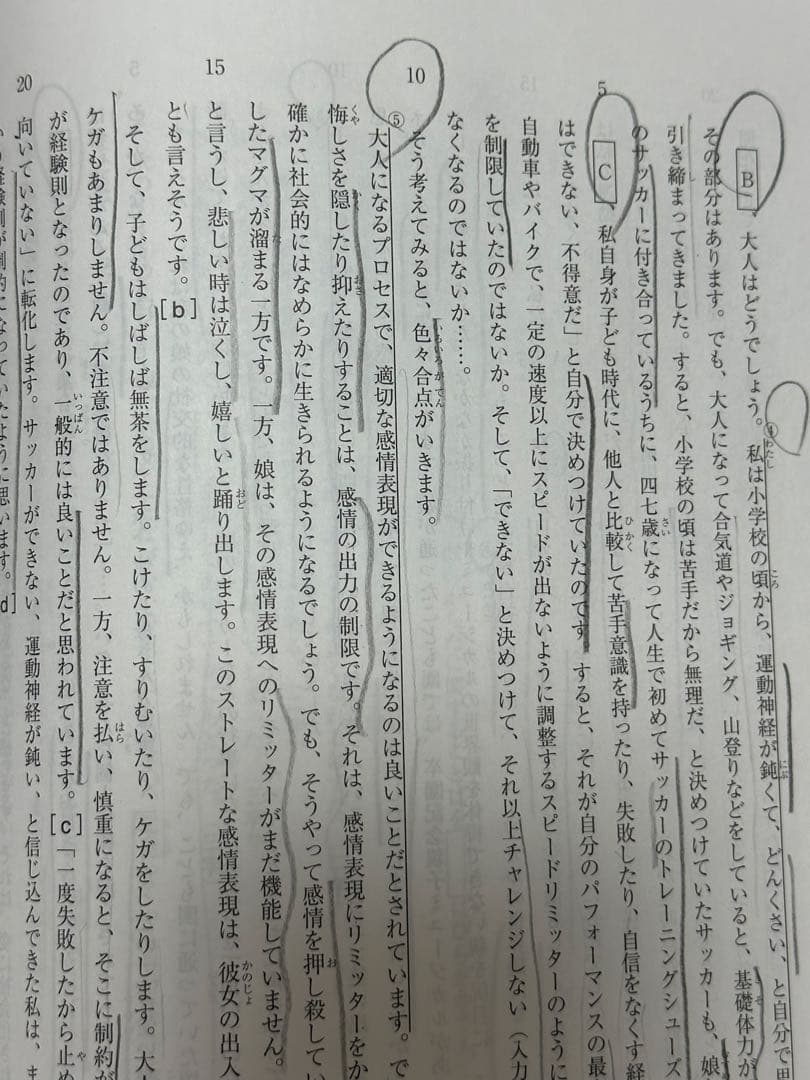 B 、大人はどうでしょう。④私は小学校の頃から、運動神経が鈍くて、どんくさい、と自分で思
その部分はあります。でも、大人になって合気道やジョギング、山登りなどをしていると、基礎体力が
引き締まってきました。すると、小学校の頃は苦手だから無理だ、と決めつけていたサッカーも、娘
のサッカーに付き合っているうちに、四七歳になって人生で初めてサッカーのトレーニングシューズ
5
C 、私自身が子ども時代に、他人と比較して苦手意識を持ったり、失敗したり、自信をなくす経
はできない、不得意だ」と自分で決めつけていたのです。すると、それが自分のパフォーマンスの最
自動車やバイクで、一定の速度以上にスピードが出ないように調整するスピードリミッターのように
を制限していたのではないか。そして、「できない」と決めつけて、それ以上チャレンジしない（入力
なくなるのではないか……。
10
そう考えてみると、色々合点がいきます。
⑤大人になるプロセスで、適切な感情表現ができるようになるのは良いことだとされています。で
悔しさを隠したり抑えたりすることは、感情の出力の制限です。それは、感情表現にリミッターをか
確かに社会的にはなめらかに生きられるようになるでしょう。でも、そうやって感情を押し殺してい
したマグマが溜まる一方です。一方、娘は、その感情表現へのリミッターがまだ機能していません。
15
と言うし、悲しい時は泣くし、嬉しいと踊り出します。このストレートな感情表現は、彼女の出入
とも言えそうです。[b]
そして、子どもはしばしば無茶をします。こけたり、すりむいたり、ケガをしたりします。大人
ケガもあまりしません。不注意ではありません。一方、注意を払い、慎重になると、そこに制約が
が経験則となったのであり、一般的には良いことだと思われています。[c]「一度失敗したから止め
20
向いていない」に転化します。サッカーができない、運動神経が鈍い、と信じ込んできた私は、ま
いう経験則が制約になっていたように思います。[d]